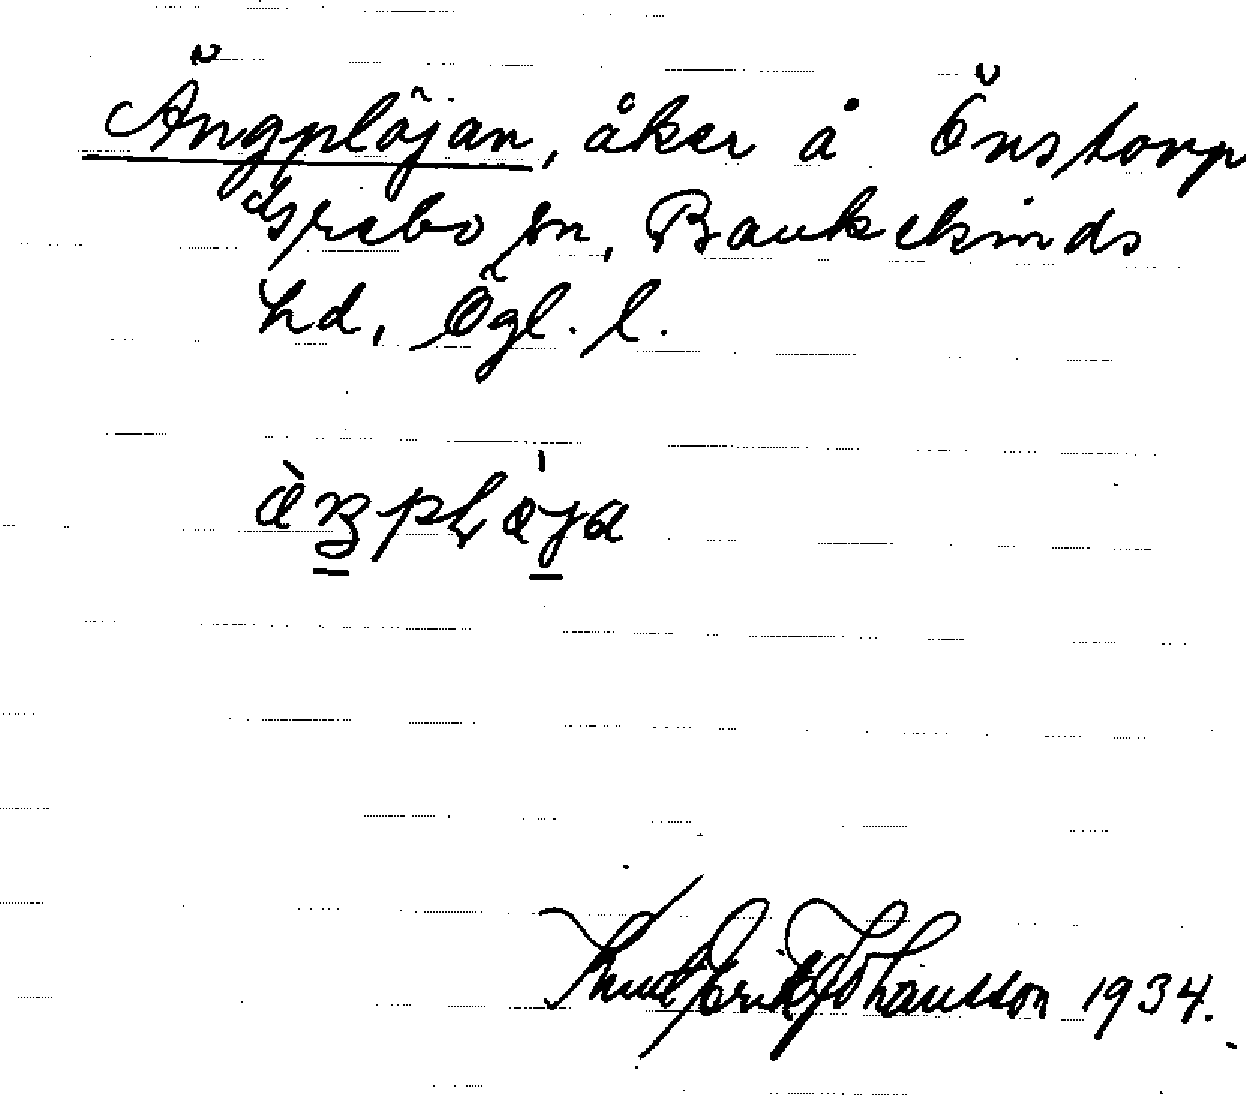 Ängplöjan, åker å Önstorp
Grebo sn, Bankekinds
hd, Ögl. l.
Knut Erik Johansson 1934.